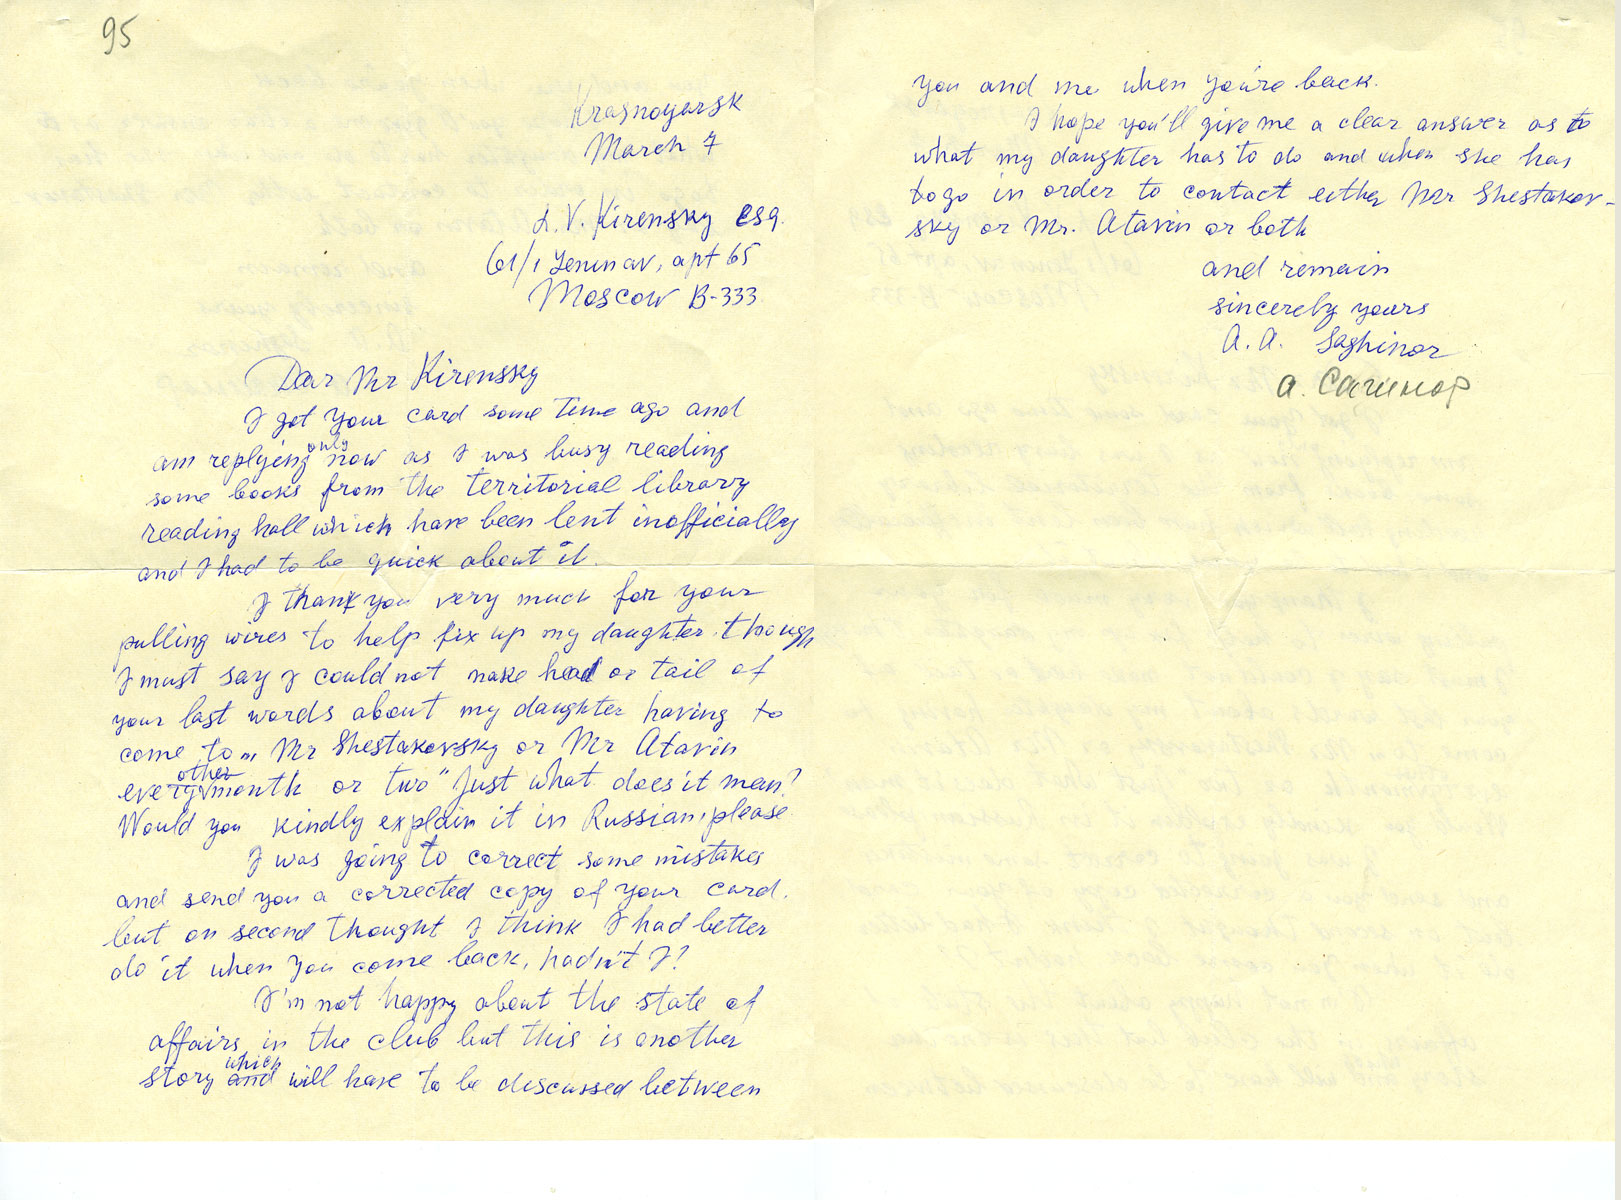 95
Krasnoyarsk
March 7
L. V. Kirensky esq.
61/1 Lenin av, apt 65
Moscow B-333
Dear Mr Kirensky
I got your card some time ago and
am replying only now as I was busy reading
some books from the territorial library
reading hall which have been lent inofficially
and I had to be quick about it.
I thank you very much for your
pulling wires to help fix up my daughter. though
I must say I could not make head or tail of
your last words about my daughter having to
come to „ Mr Shestakovsky or Mr Atavin
every other month or two“ Just what does it mean?
Would you kindly explain it in Russian, please
I was going to correct some mistakes
and send you a corrected copy of your card.
but on second thought I think I had better
do it when you come back, hadn't I?
I'm not happy about the state of
affairs in the club but this is another
story and which will have to be discussed between
you and me when you're back.
I hope you'll give me a clear answer as to
what my daughter has to do and when she has
to go in order to contact either Mr Shestakov-
sky or Mr. Atavin or both
and remain
sincerely yours
A. A. Saghinor
А. Сагинор